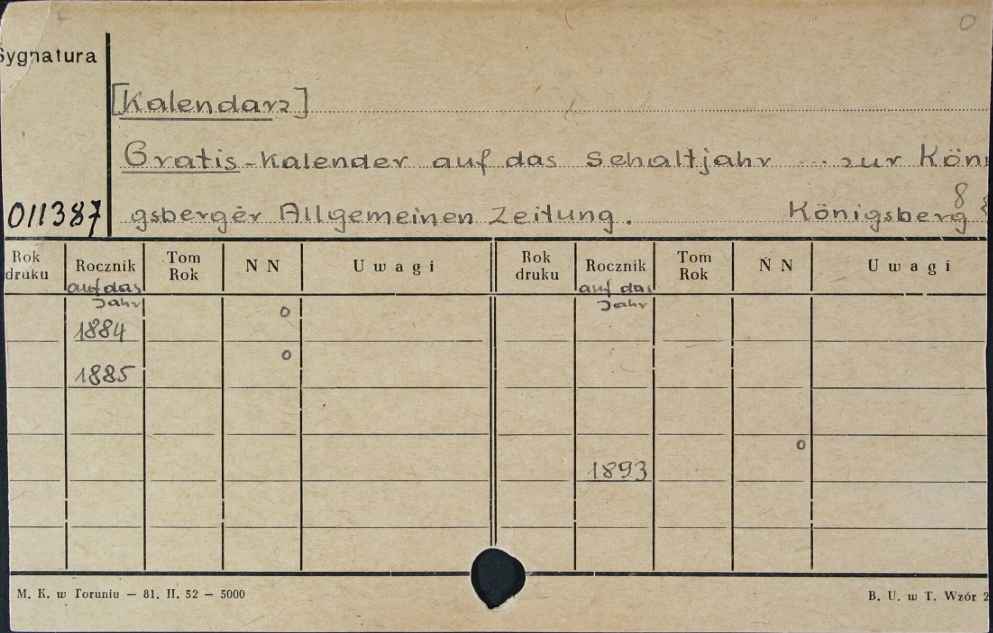 0
Sygnatura
[Kalendarz]
Gratis-Kalender auf das Schaltjahr ... zur Köni
011387 gsberger Allgemeinen Zeitung. Königsberg 8
Rok druku Rocznik Tom Rok N N Uwagi Rok druku Rocznik Tom Rok N N Uwagi
auf das Jahr auf das Jahr
1884 0
1885 0
1893 0
M. K. w Toruniu — 81. II. 52 — 5000 B. U. w T. Wzór 2